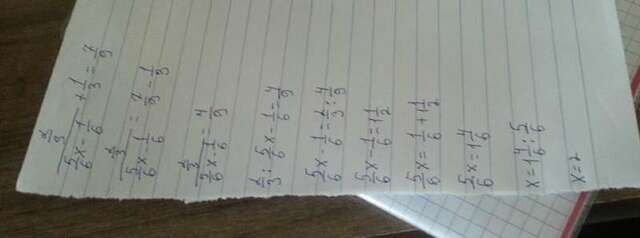 2/3 / (5/6x - 1/6) + 1/3 = 7/9
2/3 / (5/6x - 1/6) = 7/9 - 1/3
2/3 / (5/6x - 1/6) = 4/9
2/3 : 5/6x - 1/6 = 4/9
5/6x - 1/6 = 2/3 : 4/9
5/6x - 1/6 = 1 1/2
5/6x = 1/6 + 1 1/2
5/6x = 1 4/6
x = 1 4/6 : 5/6
x = 2